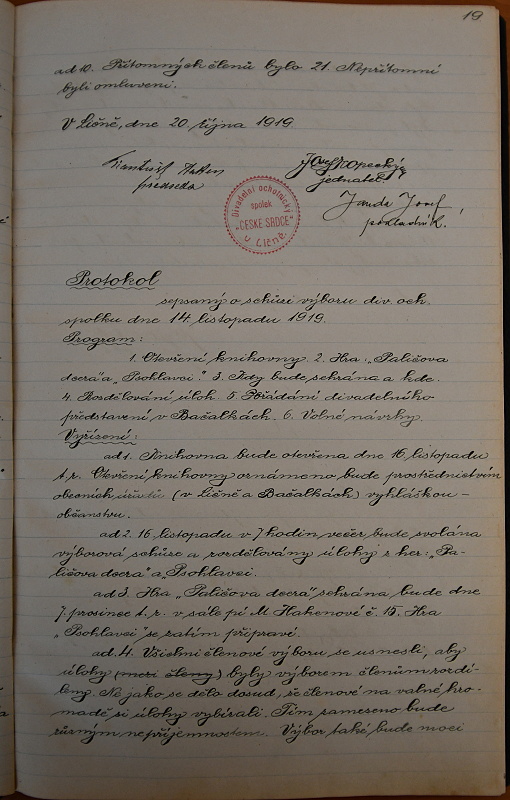 19
ad 10. Přítomných členů bylo 21. Nepřítomní
byli omluveni.
V Ličně, dne 20 října 1919.
František Haken
předseda
Josef Kopecký
jednatel.
Janda Josef
pokladník.
Divadelní ochotnický
spolek
"ČESKÉ SRDCE"
v Ličně.
Protokol
sepsaný o schůzi výboru div. och.
spolku dne 14. listopadu 1919.
Program:
1. Otevření knihovny. 2. Hra: „Paličova
dcera" a „Psohlavci". 3. Kdy bude sehrána a kde.
4. Rozdělování úloh. 5. Pořádání divadelního
představení v Bačalkách. 6. Volné návrhy.
Vyřízení:
ad 1. Knihovna bude otevřena dne 16. listopadu
t. r. Otevření knihovny oznámeno bude prostřednictvím
obecních úřadů (v Ličně a Bačalkách) vyhláškou –
občanstvu.
ad 2. 16. listopadu v 7 hodin večer bude svolána
výborová schůze a rozdělovány úlohy z her: „Pa-
ličova dcera" a „Psohlavci.
ad 3. Hra „Paličova dcera", sehrána bude dne
7. prosince t. r. v sále pí M. Hakenové č. 15. Hra
„Psohlavci" se zatím připraví.
ad. 4. Všichni členové výboru se usnesli, aby
úlohy (mezi členy) byly výborem členům rozdí-
leny. Ne jako se dělo dosud, že členové na valné hro-
madě si úlohy vybírali. Tím zamezeno bude
různým nepříjemnostem. Výbor také bude moci